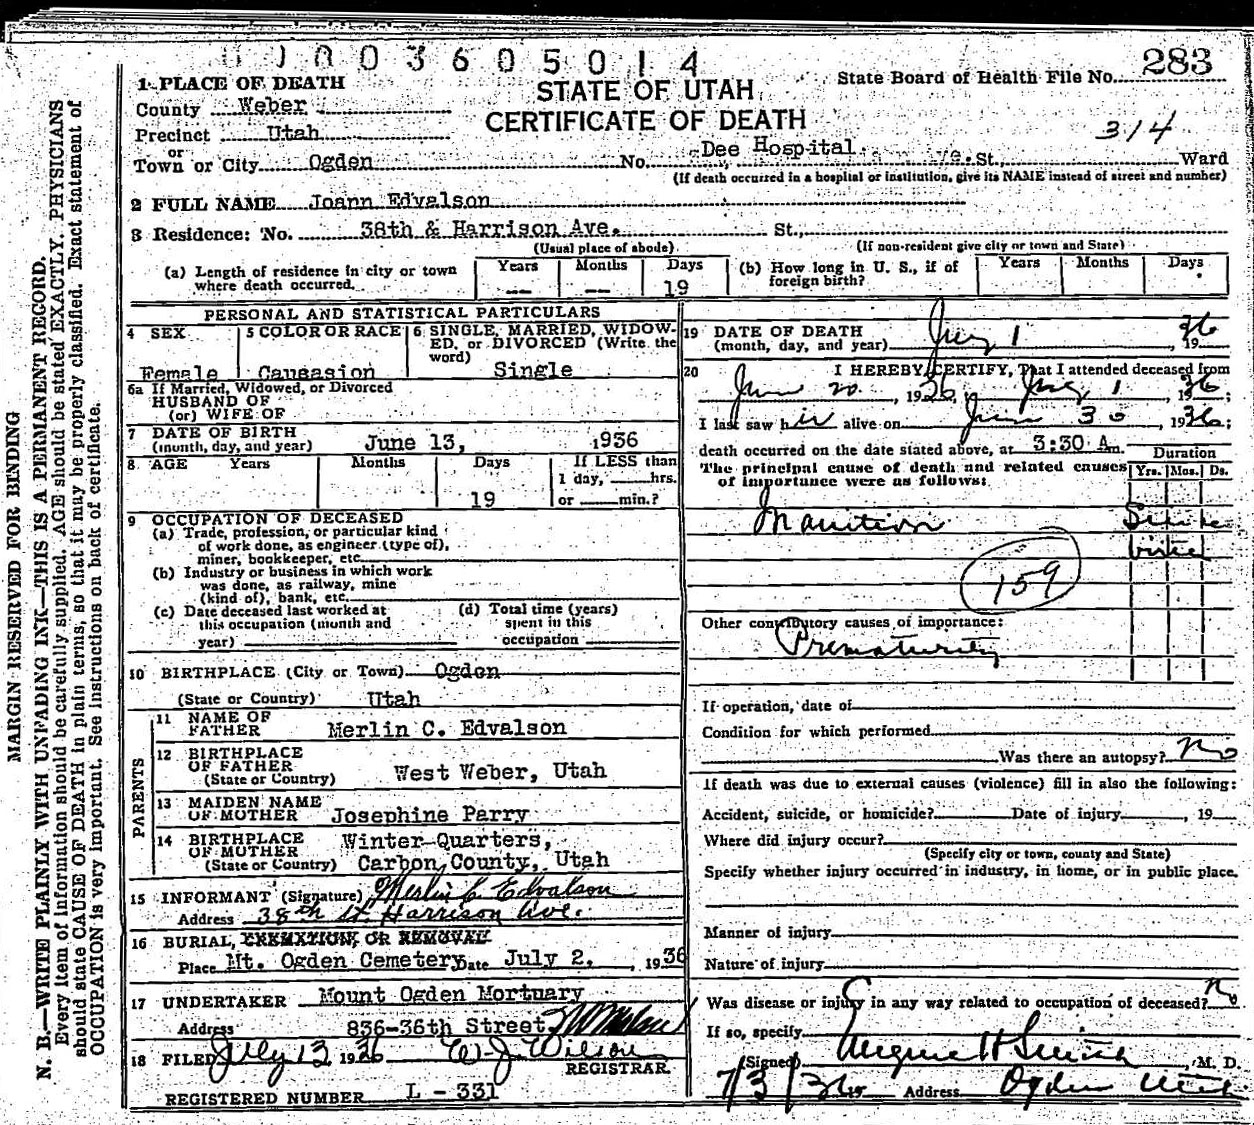 0003605014
283
1 PLACE OF DEATH
STATE OF UTAH
State Board of Health File No.
County Weber
CERTIFICATE OF DEATH
314
Precinct Utah
or
Town or City Ogden No. Dee Hospital ve. St., Ward
(If death occurred in a hospital or institution, give its NAME instead of street and number)
2 FULL NAME Joann Edvalson
3 Residence: No. 38th & Harrison Ave. St.,
(Usual place of abode) (If non-resident give city or town and State)
(a) Length of residence in city or town where death occurred. Years -- Months -- Days 19
(b) How long in U. S., if of foreign birth? Years Months Days
PERSONAL AND STATISTICAL PARTICULARS
4 SEX Female
5 COLOR OR RACE Causasion
6 SINGLE, MARRIED, WIDOW-
ED, or DIVORCED (Write the
word) Single
6a If Married, Widowed, or Divorced
HUSBAND OF
(or) WIFE OF
7 DATE OF BIRTH
(month, day, and year) June 13, 1936
8 AGE Years Months Days 19
If LESS than
1 day, hrs.
or min.?
9 OCCUPATION OF DECEASED
(a) Trade, profession, or particular kind
of work done, as engineer (type of),
miner, bookkeeper, etc.
(b) Industry or business in which work
was done, as railway, mine
(kind of), bank, etc.
(c) Date deceased last worked at
this occupation (month and
year)
(d) Total time (years)
spent in this
occupation
10 BIRTHPLACE (City or Town) Ogden
(State or Country) Utah
PARENTS
11 NAME OF
FATHER Merlin C. Edvalson
12 BIRTHPLACE
OF FATHER
(State or Country) West Weber, Utah
13 MAIDEN NAME
OF MOTHER Josephine Parry
14 BIRTHPLACE
OF MOTHER
(State or Country) Winter Quarters,
Carbon County, Utah
15 INFORMANT (Signature) Merlin C. Edvalson
Address 38th St. Harrison Ave.
16 BURIAL, CREMATION, OR REMOVAL
Place Mt. Ogden Cemetery Date July 2, 1936
17 UNDERTAKER Mount Ogden Mortuary
Address 836-36th Street
18 FILED July 13 1936 W. J. Wilson
REGISTRAR.
REGISTERED NUMBER L - 331
19 DATE OF DEATH
(month, day, and year) July 1 1936
20 I HEREBY CERTIFY, That I attended deceased from
June 20, 1936, July 1 1936;
I last saw her alive on June 30, 1936;
death occurred on the date stated above, at 3:30 A m.
The principal cause of death and related causes
of importance were as follows:
Duration
Yrs. Mos. Ds.
Inanition Since
birth
159
Other contributory causes of importance:
Prematurity
If operation, date of
Condition for which performed
Was there an autopsy? No
If death was due to external causes (violence) fill in also the following:
Accident, suicide, or homicide? Date of injury , 19
Where did injury occur?
(Specify city or town, county and State)
Specify whether injury occurred in industry, in home, or in public place.
Manner of injury
Nature of injury
Was disease or injury in any way related to occupation of deceased? No
If so, specify
(Signed) Eugene H Smith, M. D.
7/3/36 Address Ogden Utah
MARGIN RESERVED FOR BINDING
N. B.—WRITE PLAINLY WITH UNFADING INK—THIS IS A PERMANENT RECORD.
Every item of information should be carefully supplied. AGE should be stated EXACTLY. PHYSICIANS
should state CAUSE OF DEATH in plain terms, so that it may be properly classified. Exact statement of
OCCUPATION is very important. See instructions on back of certificate.